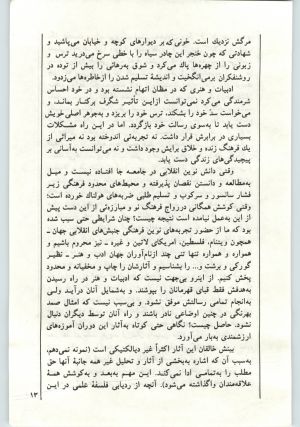 مرگش نزدیك است. خونی که بر دیوارهای کوچه و خیابان می‌پاشید و
شهادتی که چون خنجر این چادر سیاه را با خطی سرخ می‌درید ترس و
زبونی را از چهره‌ها پاك می‌کرد و شوق به‌رهائی را بیش از توده در
روشنفکران برمی‌انگیخت و اندیشهٔ تسلیم شدن را ازخاطره‌ها می‌زدود.
ادبیات و هنری که در مظان اتهام نشسته بود و در خود احساس
شرمندگی می‌کرد نمی‌توانست ازاین تأثیر شگرف برکنار بماند. و
می‌خاست سدّ خود را بشکند، ترس خود را بریزد و به‌جوهر اصلی‌خویش
دست یابد تا به‌سوی رسالت خود بازگردد. اما در این راه مشکلات
بسیاری در برابرش قرار داشت. نه تجربه‌ئی اندوخته بود نه میراثی از
فرهنگ زنده و خلاق برایش وجود داشت و نه می‌توانست به‌آسانی بر
پیچیدگی‌های زندگی دست یابد.
وقتی دانش نوین انقلابی در جامعه جا افتاده نیست و میل
به‌مطالعه و دانستن نقصان پذیرفته و محیط‌های محدود فرهنگی زیر
فشار سانسور و سرکوب و تسلیم طلبی ضربه‌های هولناك خورده است؛
وقتی کوشش همگانی در رواج فرهنگ نو و مبارزه‌ئی از این دست پیش
از این به‌عمل نیامده است نتیجه چیست؟ چنان شرایطی حتی سبب شده
بود که ما از حضور تجربه‌های نوین فرهنگی جنبش‌های انقلابی جهان -
همچون ویتنام، فلسطین، امریکای لاتین و غیره - نیز محروم باشیم و
همواره و همواره تنها تنی چند ازنام‌آوران جهان ادب و هنر - نظیر
گورکی و برشت و... را بشناسیم و آثارشان را چاپ و مخفیانه و محدود
پخش کنیم. از اینرو بی‌جهت نیست که ادبیات و هنر در راه رسیدن
به‌هدفش فقط قبای قهرمانان را بپوشند. و به‌شمایل آنان درآید ولی
به‌انجام تمامی رسالتش موفق نشود. و بی‌سبب نیست که امثال صمد
بهرنگی در چنین اوضاعی نادر باشند و راه آنان توسط دیگران دنبال
نشود. حاصل چیست؟ نگاهی حتی کوتاه به‌آثار این دوران آموزه‌های
ارزشمندی به‌بار می‌آورد.
بینش خالقان این آثار اکثراً غیر دیالکتیکی است (نمونه نمی‌دهم،
به‌سبب آن که اشاره به‌بخشی از آثار و تحلیل غیر همه جانبهٔ آنها حق
مطلب را به‌تمامی ادا نمی‌کند. این مهم به‌بعد و به‌کوشش همهٔ
علاقه‌مندان واگذاشته می‌شود). آنچه از ردیابی فلسفهٔ علمی در این
۱۳